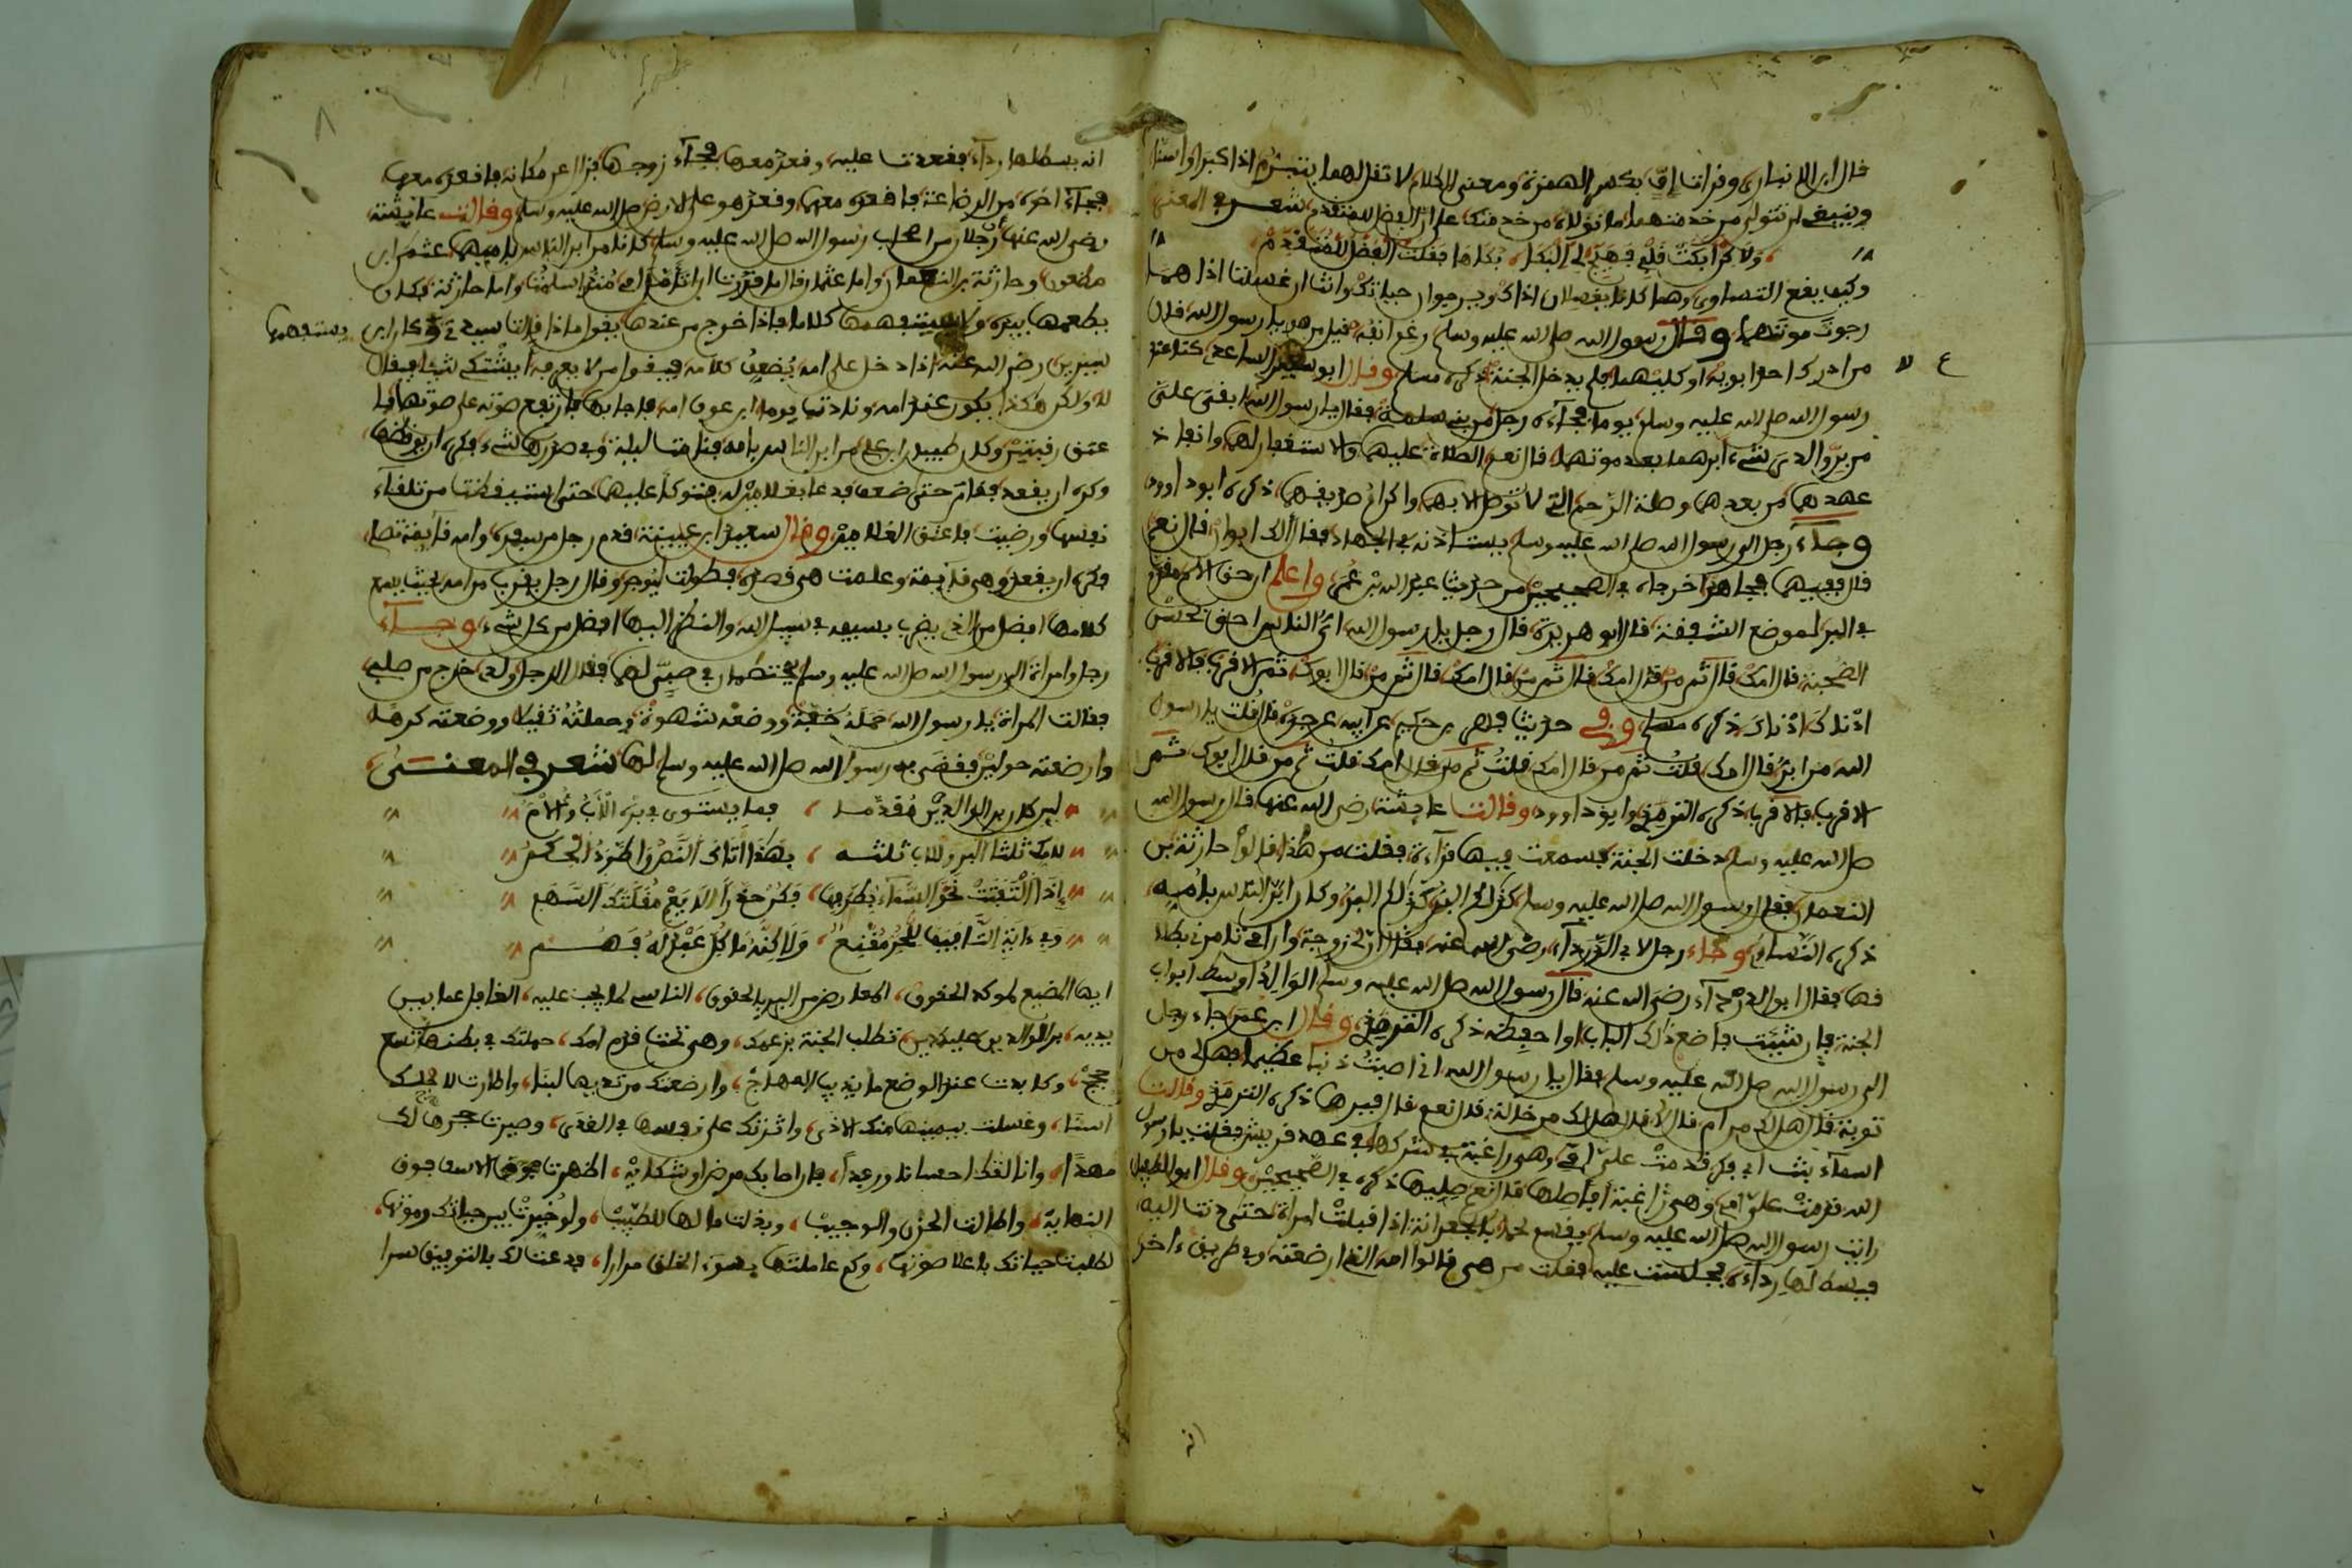 قال ابن الانباري وقرات اف بكسر الهمزة ومعنى الكلام لا تقل لهما بتبرم اذا كبرا واسنا
وينبغي ان تتولى من خدمتهما ما تولاه من خدمتك على ان الفضل للمتقدم شعر في المعنى
ولاكن ابكت قلبي فهيج لي البكا بكاها فقلت الفضل للمتقدم
وكيف يقع التساوي وهما كانا يفعلان اذاك وهم يرجوان حياتك وانت ان غسلتا اذاهما
رجوت موتهما وقال رسول الله صلى الله عليه وسلم رغم انفه قيل من هو يا رسول الله قال
من ادرك احد ابويه او كليهما فلم يدخل الجنة ذكره مسلم وقال ابو سعيد الساعدي كنا عند
رسول الله صلى الله عليه وسلم يوما فجاءه رجل من بني سلمة فقال يا رسول الله ابقي علي
من بر والدي شيء ابرهما بعد موتهما قال نعم الصلاة عليهما والاستغفار لهما وانفاذ
عهدهما من بعدهما وصلة الرحم التي لا توصل الا بهما واكرام صديقهما ذكره ابو داوود
وجاء رجل الى رسول الله صلى الله عليه وسلم يستاذنه في الجهاد فقال الك ابوان قال نعم
قال ففيهما فجاهد اخرجاه في الصحيحين من حديث عبد الله بن عمر واعلم ان حق الام مقدم
في البر لموضع الشفقة قال ابو هريرة قال رجل يا رسول الله اي الناس احق بحسن
الصحبة قال امك قال ثم من قال امك قال ثم من قال امك قال ثم من قال ابوك ثم الاقرب فالاقرب
ادناك ادناك ذكره مسلم وفي حديث بهز بن حكيم عن ابيه عن جده قال قلت يا رسول
الله من ابر قال امك قلت ثم من قال امك قلت ثم من قال امك قلت ثم من قال ابوك ثم
الاقرب فالاقرب ذكره الترمذي وابو داوود وقالت عايشة رضي الله عنها قال رسول الله
صلى الله عليه وسلم دخلت الجنة فسمعت فيها قراءة فقلت من هذا قالوا حارثة بن
النعمان فقال رسول الله صلى الله عليه وسلم كذلكم البر كذلكم البر وكان ابر الناس بامه
ذكره النساي وجاء رجل لابي الدرداء رضي الله عنه فقال ان لي زوجة وان امي تامرني بطلا
قها فقال ابو الدرداء رضي الله عنه قال رسول الله صلى الله عليه وسلم الوالد اوسط ابواب
الجنة فان شيت فاضع ذلك الباب او احفظه ذكره الترمذي وقال ابن عمر جاء رجل
الى رسول الله صلى الله عليه وسلم فقال يا رسول الله اني اصبت ذنبا عظيما فهل لي من
توبة قال هل لك من ام قال لا قال هل لك من خالة قال نعم قال فبرها ذكره الترمذي وقالت
اسماء بنت ابي بكر قدمت علي امي وهي راغبة في شركها في عهد قريش فقلت يا رسول
الله قدمت علي امي وهي راغبة افاصلها قال نعم صليها ذكره في الصحيحين وقال ابو الطفيل
رايت رسول الله صلى الله عليه وسلم يقسم لحما بالجعرانة اذا قبلت امراة حتى دنت اليه
فبسط لها رداءه فجلست عليه فقلت من هي قالوا امه التي ارضعته وفي طريق ءاخر
انه بسط لها رداء فقعدت عليه وقعد معها فجاء زوجها فنزل عن مكانه فاقعده معها
فجاء اخوه من الرضاعة فاقعده معها وقعد هو على الارض صلى الله عليه وسلم وقالت عايشة
رضي الله عنها رجلان من اصحاب رسول الله صلى الله عليه وسلم كانا من ابر الناس بامهما عثمان ابن
مظعون وحارثة بن النعمان واما عثمان قال ما قدرت ان اتامل امي منذ اسلمت واما حارثة فكان
يطعمها بيده ولا يستفهمها كلاما فاذا خرج من عندها يقول ماذا قالت سيدتي وكان ابن
يستفهمها
سيرين رضي الله عنه اذا دخل على امه يضعف كلامه فيقول من لا يعرفه ايشتكي شيئا فيقال
لا ولكن هكذا يكون عند امه ونادته يوما ابن عون امه فاجابها فارتفع صوته على صوتها فا
عتق رقبتين وكان طبيبا ابن علي من ابر الناس بامه فباتت ليلة وفي صدرها شيء فكره ان يوقظها
وكره ان يقعد فقام حتى ضعف فدعا بغلامين له فتوكا عليهما حتى استيقظت من تلقاء
نفسها ورضيت فاعتق الغلامين وقال سعيد ابن عيينة قدم رجل من سفره وامه قايمة تصلي
فكره ان يقعد وهي قايمة وعلمت هي قصده فطولت ليوجر وقال رجل يقرب من امه بحيث يسمع
كلامها افضل من الذي يضرب بسيفه في سبيل الله والنظر اليها افضل من كل شيء وجاء
رجل وامراة الى رسول الله صلى الله عليه وسلم يختصمان في صبي لهما فقال الرجل ولدي خرج من صلبي
فقالت المراة يا رسول الله حمله خفة ووضعه شهوة وحملته ثقيلا ووضعته كرها
وارضعته حولين فقضى به رسول الله صلى الله عليه وسلم لها شعر في المعنى
لين كان بر الوالدين مقدما فما يستوي في بره الاب والام
لامك ثلثا البر وللاب ثلثه بهذا اتاك النص واطرد الحكم
اذا التفتت نحو السماء بطرفها فكن حذرا لا يقع مقلتك السهم
وفي ءاية التافيف للحر مقنع ولاكنه ما كل عبد له فهم
ايها المضيع لموكد الحقوق المعارض من البر بالعقوق الناسي لما يجب عليه الغافل عما بين
يديه بر الوالدين عليك دين تطلب الجنة بزعمك وهي تحت قدم امك حملتك في بطنها تسع
حجج وكابدت عند الوضع ما يذيب المهاج وارضعتك من ثديها لبنا واطارت لاجلك
وسنا وغسلت بيمينها عنك الاذى واثرتك على نفسها في الغذى وصيرت حجرها لك
مهدا وانالتك احسانا ورفدا فان اصابك مرض او شكاية اظهرت من الاسف فوق
النهاية واطالت الحزن والوجيب وبذلت مالها للطبيب ولو خيرت بين حياتك وموتها
لطلبت حياتك باعلا صوتها وكم عاملتها بسوء الخلق مرارا فدعت لك بالتوفيق سرا